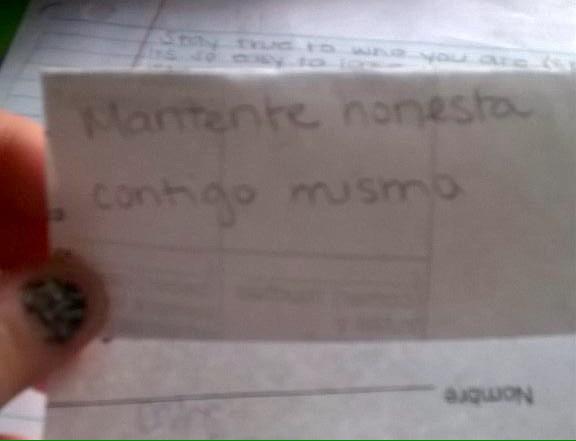 Stay true to who you are
it's so easy to
Mantente honesta
contigo misma
Nombre